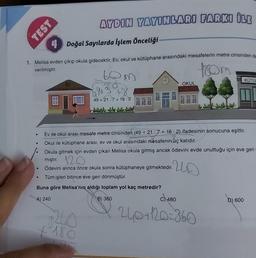 AYDIN YAYINLARI FARKI İLE
TEST
4
Doğal Sayılarda İşlem Önceliği
1. Melisa evden çıkıp okula gidecektir. Ev, okul ve kütüphane arasındaki mesafelerin metre cinsinden
verilmiştir.
60 m
OKUL
49 + 21 : 7 + 18 · 2
• Ev ile okul arası mesafe metre cinsinden (49 + 21 : 7 + 18 · 2) ifadesinin sonucuna eşittir.
• Okul ile kütüphane arası, ev ve okul arasındaki mesafenin üç katıdır.
• Okula gitmek için evden çıkan Melisa okula gitmiş ancak ödevini evde unuttuğu için eve geri
muştur. 120
• Ödevini alınca önce okula sonra kütüphaneye gitmektedir. 240
• Tüm işleri bitince eve geri dönmüştür.
Buna göre Melisa'nın aldığı toplam yol kaç metredir?
A) 240
B) 360
C) 480
D) 600
240+120=360
240